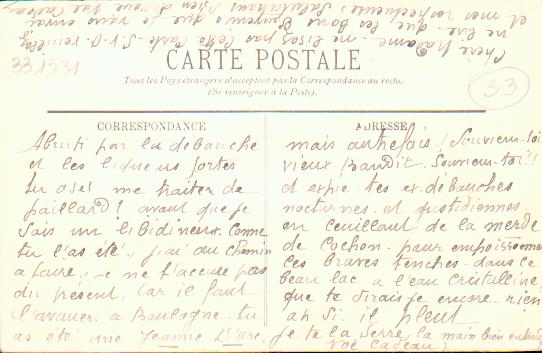 Chère Madame - ne lisez pas cette carte - S.V.P. veuillez
ne lire que les bons souvenirs que je vous envoie
et mes respectueuses salutations
331531
CARTE POSTALE
33
Tous les Pays étrangers n'acceptent pas la Correspondance au recto.
(Se renseigner à la Poste).
CORRESPONDANCE
Abruti par la débauche
et les liqueurs fortes
tu oses me traiter de
paillard! avant que je
sois un libidineux comme
tu l'as été, j'ai du chemin
a faire, je ne t'accuse pas
du présent, car il faut
l'avouer a Boulogne tu
as été une Jeanne D'arc,
ADRESSE
mais autrefois! Souviens-toi
vieux Bandit. Souviens-toi!!
et expie tes ex-débauches
nocturnes et quotidiennes
en cueillant de la merde
de cochon pour empoisonner
ces braves tenches dans ce
beau lac a l'eau cristalline,
que te dirais je encore - rien
ah si il pleut
je te la serre, la main bien entendu